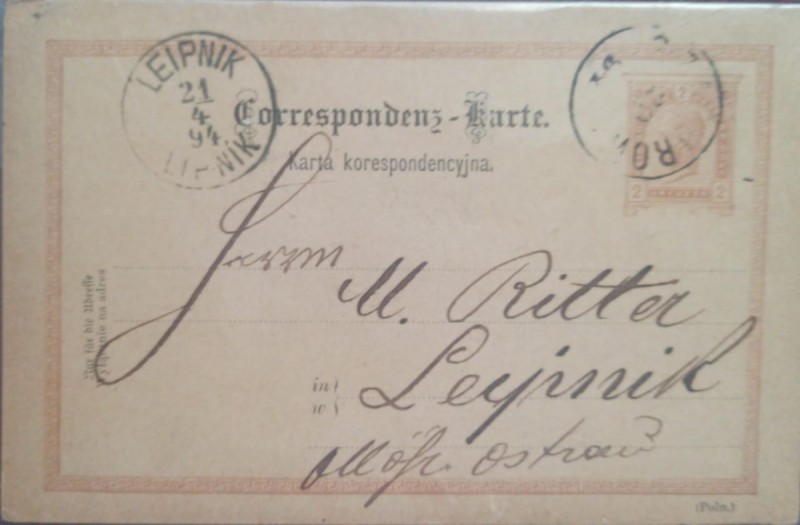 LEIPNIK
21
4
94
LIPNIK
Correspondenz-Karte.
Karta korespondencyjna.
2 2
Herrn
M. Ritter
in
w
Leipnik
Mähr. Ostrau
Nur für die Adresse
Wyłącznie na adres
(Poln.)